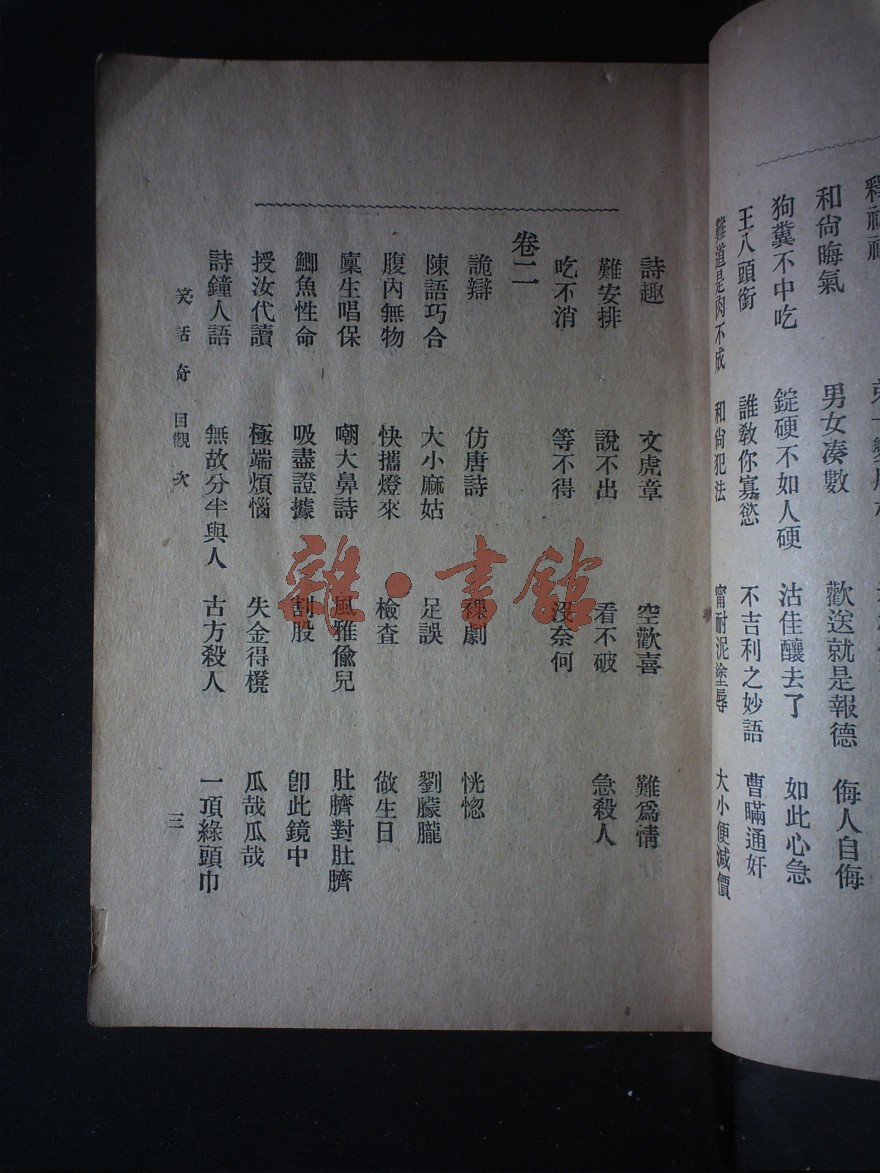 和尚晦氣　男女湊數　歡送就是報德　侮人自侮
狗糞不中吃　錠硬不如人硬　沽佳釀去了　如此心急
王八頭銜　誰教你寡慾　不吉利之妙語　曹瞞通奸
難道是肉不成　和尚犯法　甯耐泥塗辱　大小便減價
詩趣　文虎章　空歡喜　難為情
難安排　說不出　看不破　急殺人
吃不消　等不得　沒奈何
卷二
詭辯　仿唐詩　裸劇　恍惚
陳語巧合　大小麻姑　足誤　劉朦朧
腹內無物　快攜燈來　檢查　做生日
廩生唱保　嘲大鼻詩　風雅偸兒　肚臍對肚臍
鯽魚性命　吸盡證據　割股　卽此鏡中
授汝代讀　極端煩惱　失金得櫈　瓜哉瓜哉
詩鐘人語　無故分半與人　古方殺人　一頂綠頭巾
笑話奇　目觀次　三
雜·書館